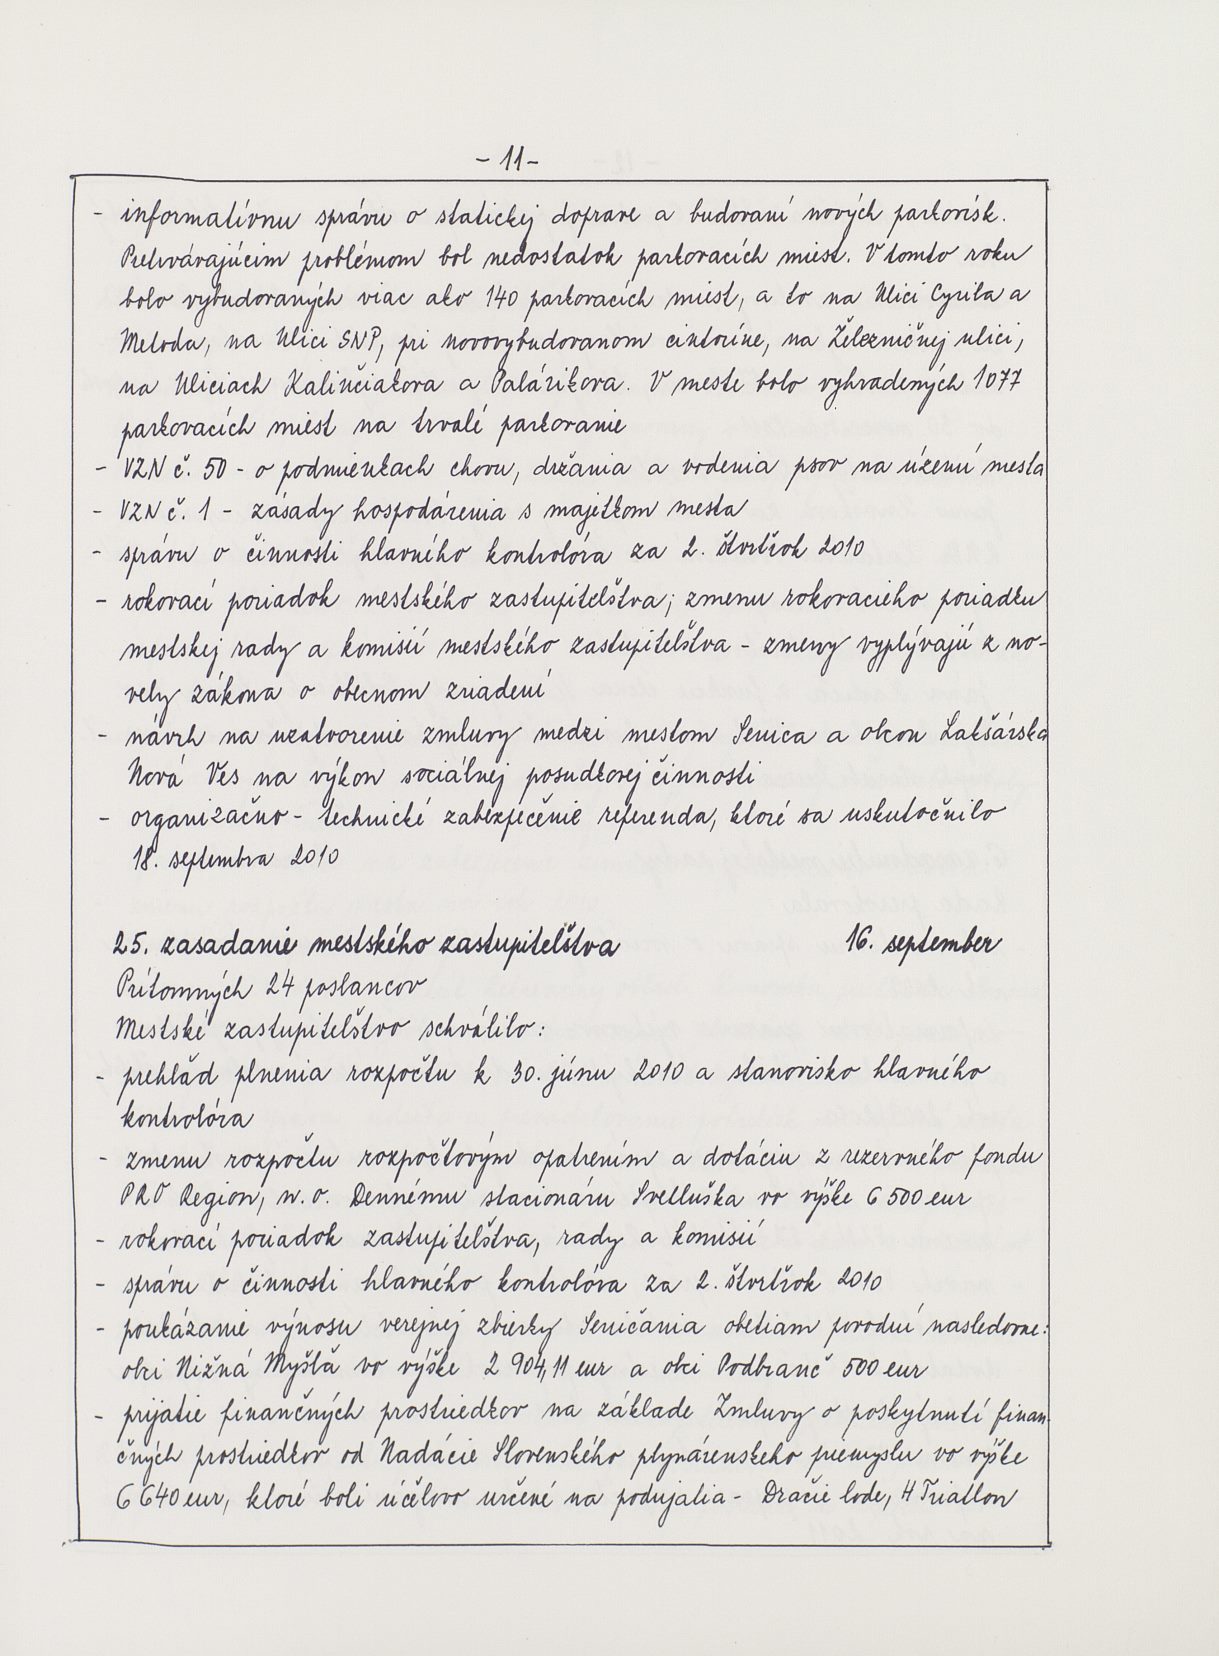 - 11 -
- informatívnu správu o statickej doprave a budovaní nových parkovísk.
Pretrvávajúcim problémom bol nedostatok parkovacích miest. V tomto roku
bolo vybudovaných viac ako 140 parkovacích miest, a to na Ulici Cyrila a
Metoda, na Ulici SNP, pri novovybudovanom cintoríne, na Železničnej ulici,
na Uliciach Kalinčiakova a Palárikova. V meste bolo vyhradených 1077
parkovacích miest na trvalé parkovanie
- VZN č. 50 - o podmienkach chovu, držania a vodenia psov na území mesta
- VZN č. 1 - zásady hospodárenia s majetkom mesta
- správu o činnosti hlavného kontrolóra za 2. štvrťrok 2010
- rokovací poriadok mestského zastupiteľstva; zmenu rokovacieho poriadku
mestskej rady a komisií mestského zastupiteľstva - zmeny vyplývajú z no-
vely zákona o obecnom zriadení
- návrh na uzatvorenie zmluvy medzi mestom Senica a obcou Lakšárska
Nová Ves na výkon sociálnej posudkovej činnosti
- organizačno - technické zabezpečenie referenda, ktoré sa uskutočnilo
18. septembra 2010
25. zasadanie mestského zastupiteľstva 16. september
Prítomných 24 poslancov
Mestské zastupiteľstvo schválilo:
- prehľad plnenia rozpočtu k 30. júnu 2010 a stanovisko hlavného
kontrolóra
- zmenu rozpočtu rozpočtovým opatrením a dotáciu z rezervného fondu
PRO Region, n. o. Dennému stacionáru Svetluška vo výške 6 500 eur
- rokovací poriadok zastupiteľstva, rady a komisií
- správu o činnosti hlavného kontrolóra za 2. štvrťrok 2010
- poukázanie výnosu verejnej zbierky Seničania obetiam povodní nasledovne:
obci Nižná Myšľa vo výške 2 904,11 eur a obci Podbranč 500 eur
- prijatie finančných prostriedkov na základe Zmluvy o poskytnutí finan-
čných prostriedkov od Nadácie Slovenského plynárenského priemyslu vo výške
6 640 eur, ktoré boli účelovo určené na podujatia - Dračie lode, H Triatlon